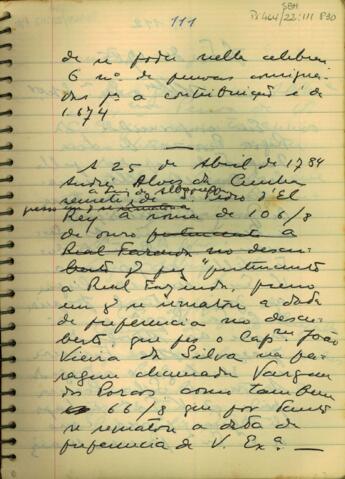 111
SBH
Pi 464/22:III P30
de se poder nella celebrar
O nº de pessoas consigna-
das pª a contribuição é de
1.674
A 25 de Abril de 1784
André Alves da Cunha
remette a Luis de Albuquerque
Pedro d'El
Rey a soma de 106/8
de ouro pertencente a
Real Fazenda no descu-
berto q fez "pertencente
á Real Fazenda, preço
em q se rematou a data
de preferencia no descu-
berto, que fez o Capᵃᵐ João
Vieira da Silva na pa-
ragem chamada Vargem
dos Porcos como tambem
66/8 que por tanto
se rematou a data de
preferencia de V. Exª. —